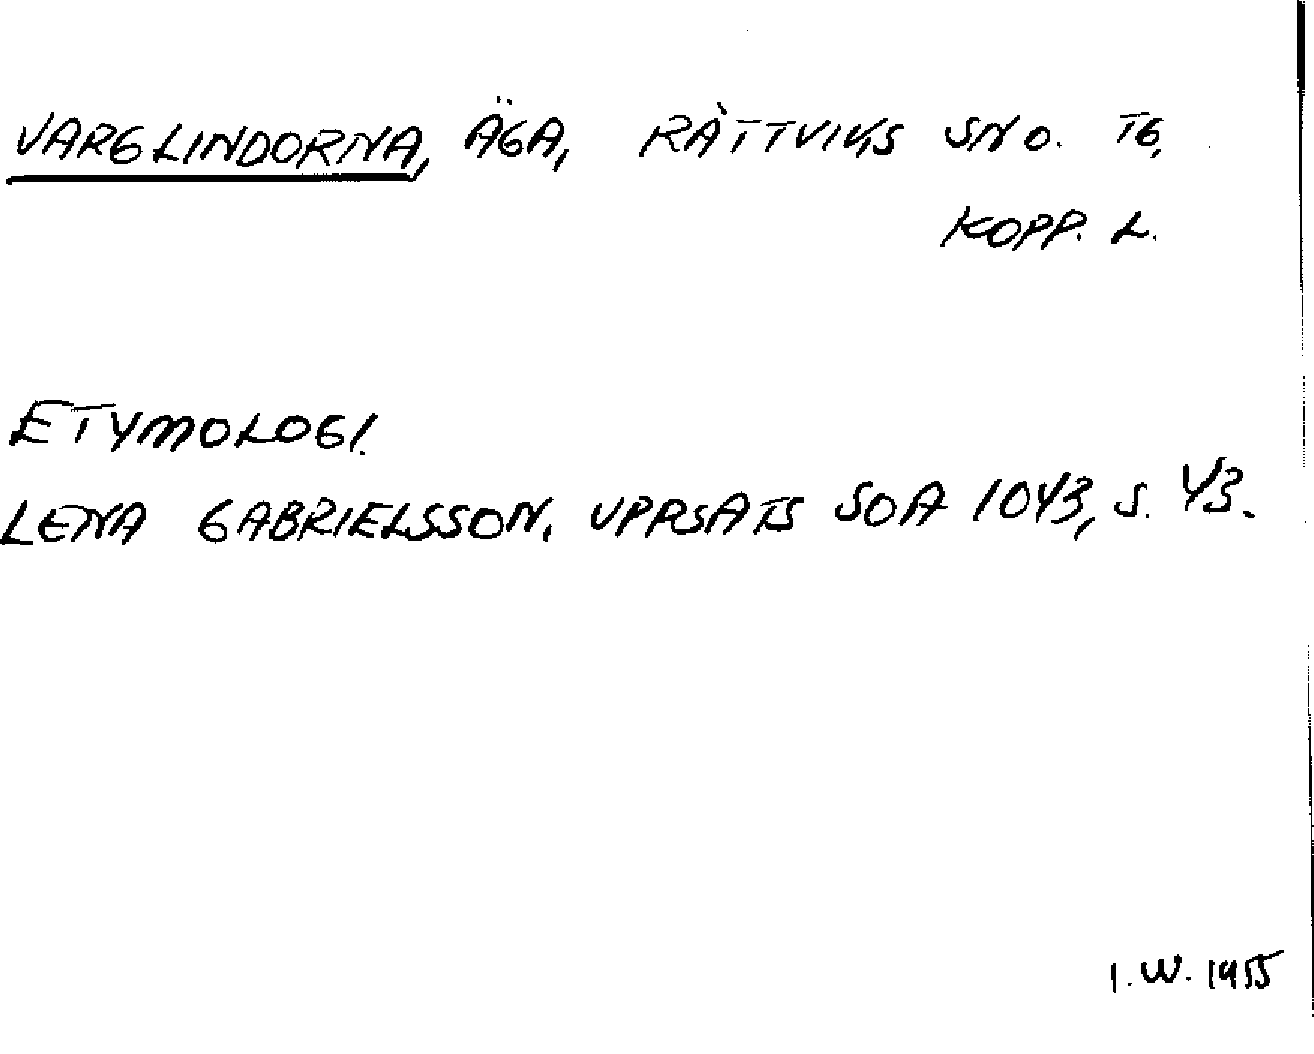 VARGLINDORNA, ÄGA, RÄTTVIKS SN O. TG,
KOPP. L.
ETYMOLOGI.
LENA GABRIELSSON. UPPSATS SOA 1043, S. 43.
I. W. 1955